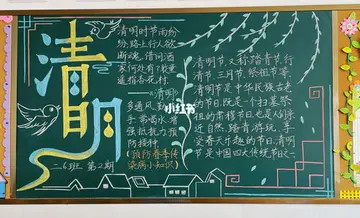 清明
清明时节雨纷
纷,路上行人欲
断魂。借问酒
家何处有?牧童
遥指杏花村。
《清明》
多通风,勤洗
手,常喝水,增
强抵抗力,预
防接种。
(预防春季传
染病小知识)
清明节,又称踏青节、行
清节、三月节、祭祖节等。
清明节是中华民族古老
的节日,既是一个扫墓祭
祖的肃穆节日,也是人们亲
近自然、踏青游玩、享
受春天乐趣的节日。清明
节是中国四大传统节日之一
小红书
二.6班 第2期